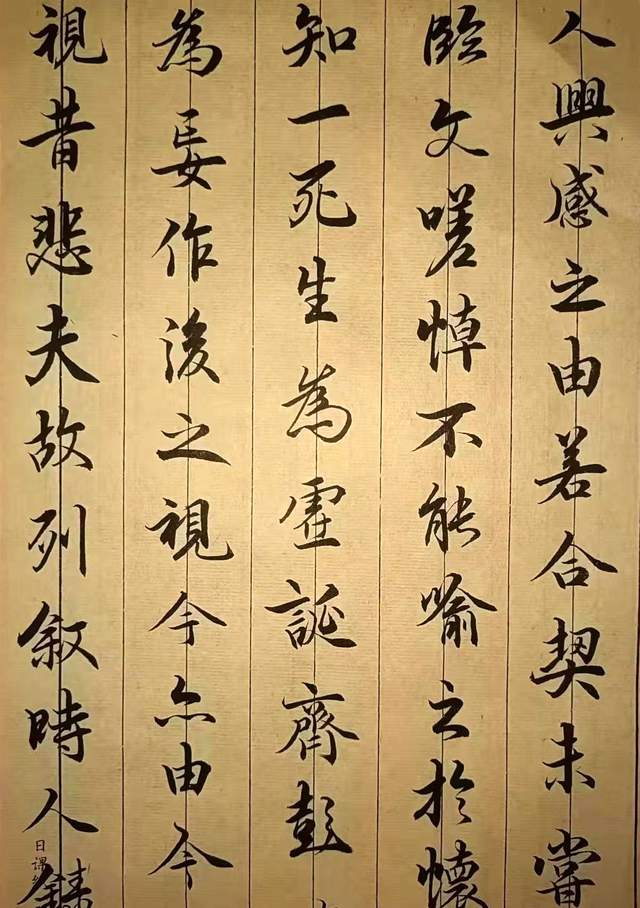 人興感之由若合契未嘗
臨文嗟悼不能喻之於懷
知一死生為虛誕齊彭
為妄作後之視今亦由今
視昔悲夫故列敘時人錄
日課